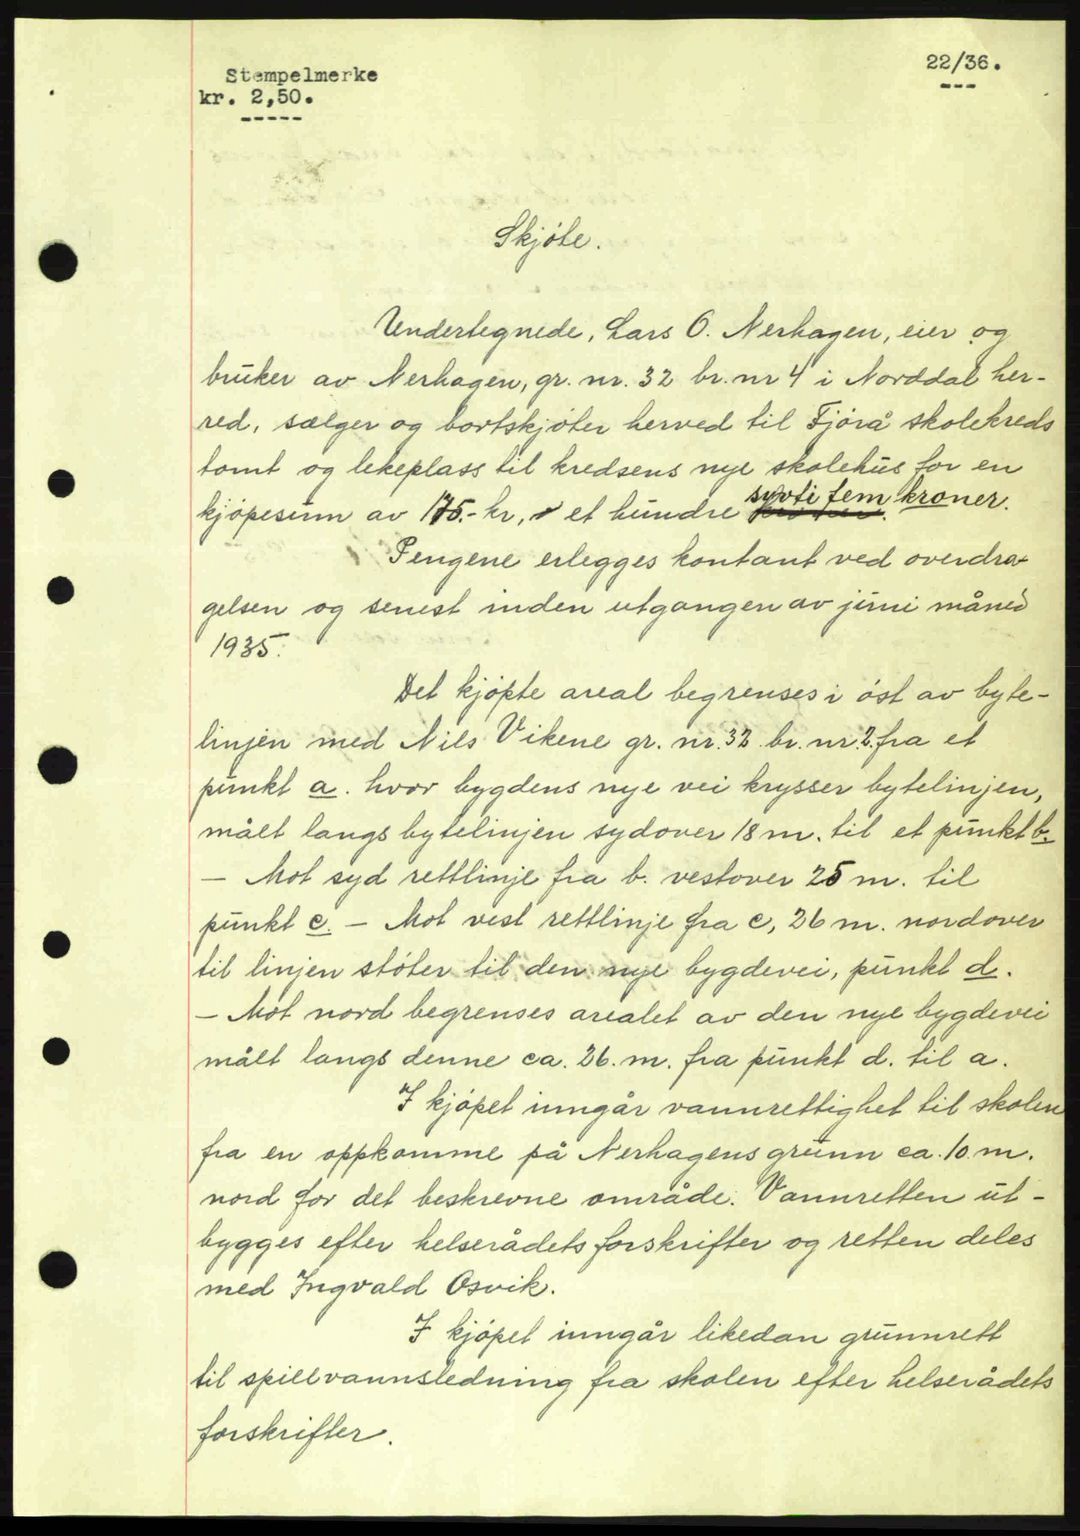 22/36.
---
Stempelmerke
kr. 2,50.
-----
Skjøte.
Undertegnede, Lars O. Nerhagen, eier og
bruker av Nerhagen, gr. nr. 32 br. nr 4 i Norddal her-
red, sælger og bortskjøter herved til Fjørå skolekreds
tomt og lekeplass til kredsens nye skolehus for en
kjøpesum av 175.- kr, et hundre sytti fem kroner.
Pengene erlegges kontant ved overdra-
gelsen og senest inden utgangen av juni måned
1935.
Det kjøpte areal begrenses i øst av byte-
linjen med Nils Vikene gr. nr. 32 br. nr. 2. fra et
punkt a. hvor bygdens nye vei krysser bytelinjen,
målt langs bytelinjen sydover 18 m. til et punkt b.
- Mot syd rettlinje fra b. vestover 25 m. til
punkt c. - Mot vest rettlinje fra c, 26 m. nordover
til linjen støter til den nye bygdevei, punkt d.
- Mot nord begrenses arealet av den nye bygdevei
målt langs denne ca. 26. m. fra punkt d. til a.
I kjøpet inngår vannrettighet til skolen
fra en oppkomme på Nerhagens grunn ca. 10. m.
nord for det beskrevne område. Vannretten ut-
bygges efter helserådets forskrifter og retten deles
med Ingvald Osvik.
I kjøpet inngår likedan grunnrett
til spillvannsledning fra skolen efter helserådets
forskrifter.